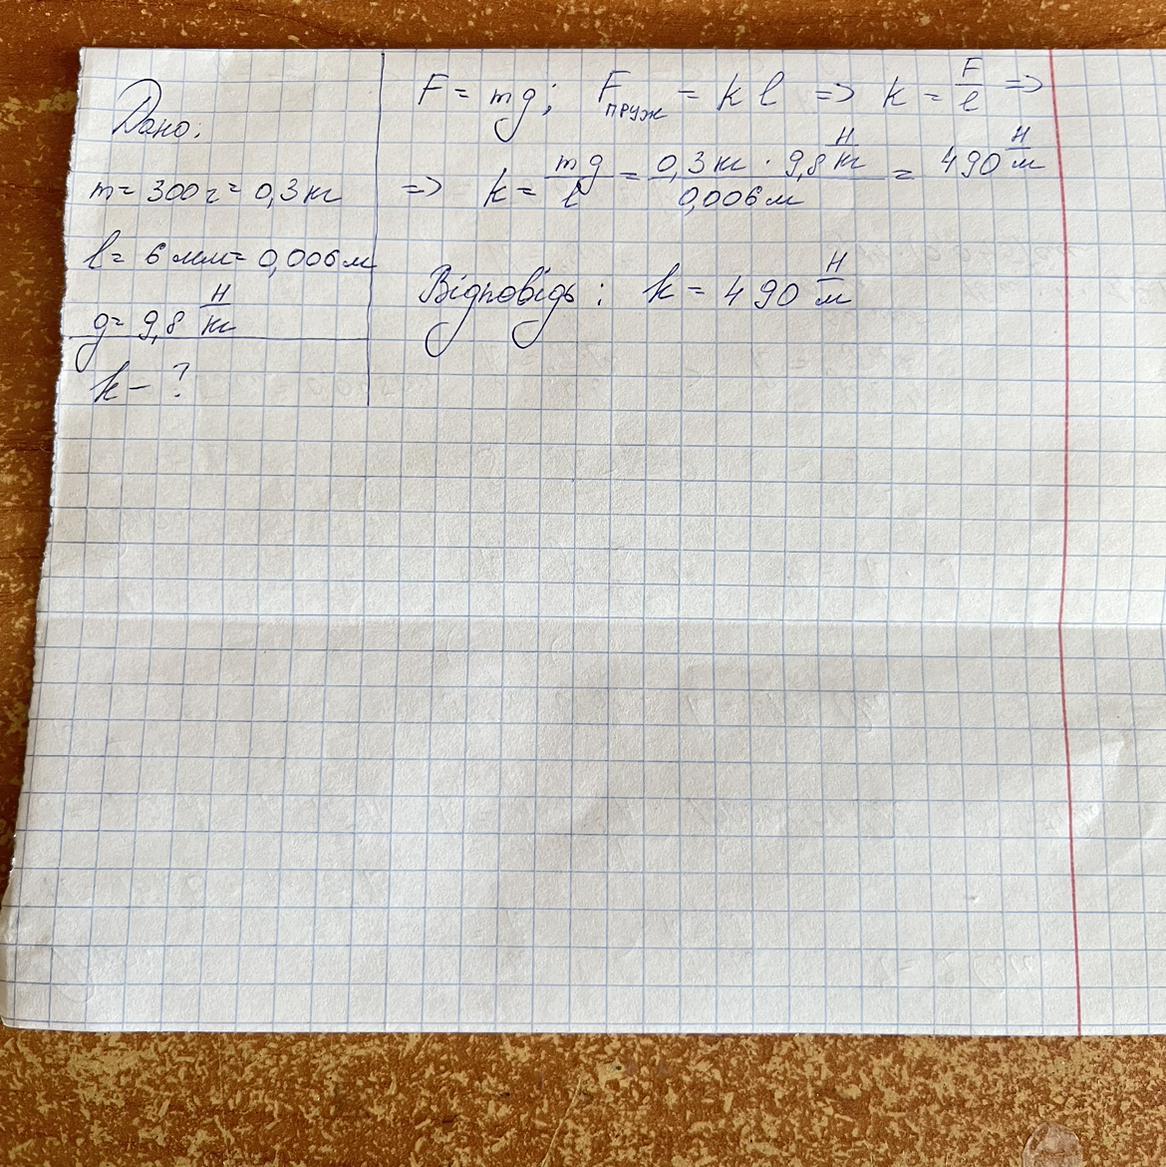 Дано:
m = 300 г = 0,3 кг
l = 6 мм = 0,006 м
g = 9,8 Н/кг
k – ?
F = mg; Fпруж = k l => k = F/l =>
=> k = mg/l = 0,3 кг · 9,8 Н/кг / 0,006 м = 490 Н/м
Відповідь: k = 490 Н/м